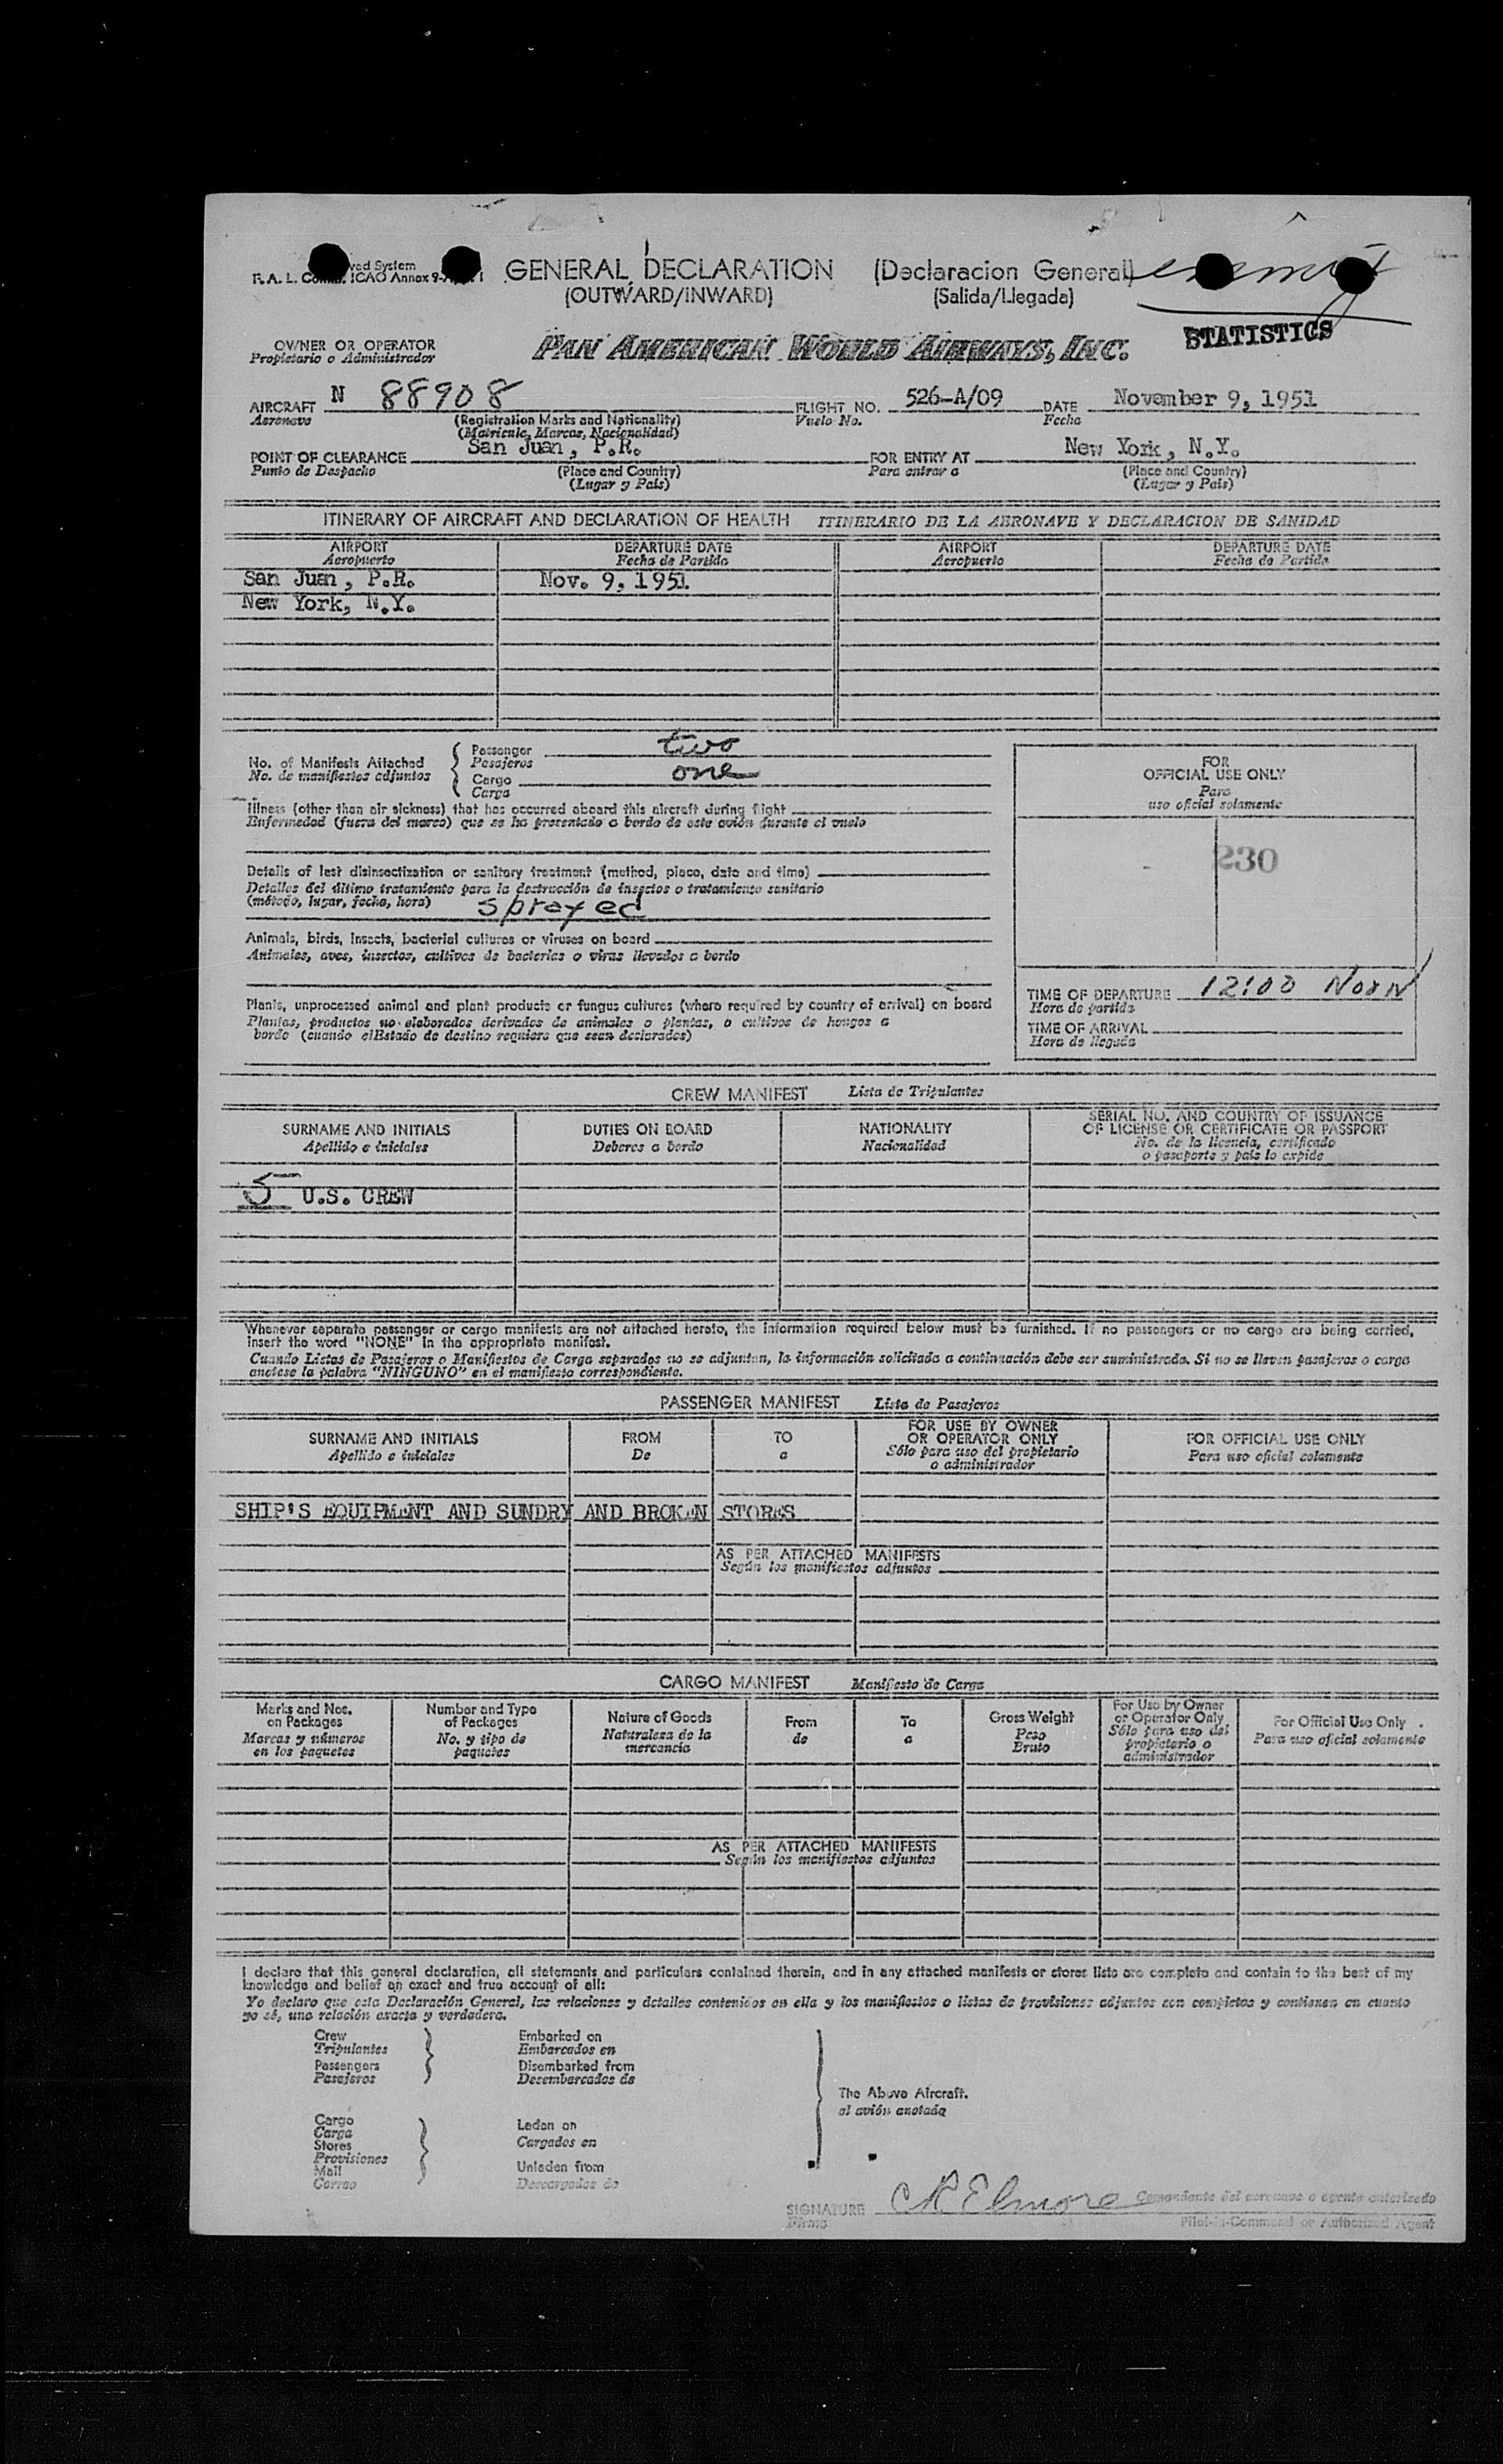 GENERAL DECLARATION (Declaracion General)
F. A. L. ICAO Annex 9
(OUTWARD/INWARD) (Salida/Llegada)
STATISTICS
OWNER OR OPERATOR PAN AMERICAN WORLD AIRWAYS, INC.
Propietario o Administrador
AIRCRAFT N 88908 FLIGHT NO. 526-A/09 DATE November 9, 1951
Aeronave (Registration Marks and Nationality) Vuelo No. Fecha
(Matricula, Marcas, Nacionalidad)
POINT OF CLEARANCE San Juan, P.R. FOR ENTRY AT New York, N.Y.
Punto de Despacho (Place and Country) Para entrar a (Place and Country)
(Lugar y País) (Lugar y País)
ITINERARY OF AIRCRAFT AND DECLARATION OF HEALTH ITINERARIO DE LA AERONAVE Y DECLARACION DE SANIDAD
AIRPORT DEPARTURE DATE AIRPORT DEPARTURE DATE
Aeropuerto Fecha de Partida Aeropuerto Fecha de Partida
San Juan, P.R. Nov. 9, 1951
New York, N.Y.
No. of Manifests Attached
No. de manifiestos adjuntos
Passenger two
Pasajeros
Cargo one
Carga
FOR
OFFICIAL USE ONLY
Para
uso oficial solamente
230
Illness (other than air sickness) that has occurred aboard this aircraft during flight
Enfermedad (fuera del mareo) que se ha presentado a bordo de este avión durante el vuelo
Details of last disinsectization or sanitary treatment (method, place, date and time)
Detalles del último tratamiento para la destrucción de insectos o tratamiento sanitario
(método, lugar, fecha, hora) sprayed
Animals, birds, insects, bacterial cultures or viruses on board
Animales, aves, insectos, cultivos de bacterias o virus llevados a bordo
TIME OF DEPARTURE 12:00 NOON
Hora de partida
TIME OF ARRIVAL
Hora de llegada
Plants, unprocessed animal and plant products or fungus cultures (where required by country of arrival) on board
Plantas, productos no elaborados derivados de animales o plantas, o cultivos de hongos a
bordo (cuando elEstado de destino requiera que sean declarados)
CREW MANIFEST Lista de Tripulantes
SURNAME AND INITIALS DUTIES ON BOARD NATIONALITY SERIAL NO. AND COUNTRY OF ISSUANCE
OF LICENSE OR CERTIFICATE OR PASSPORT
Apellido e iniciales Deberes a bordo Nacionalidad No. de la licencia, certificado
o pasaporte y país lo expide
5 U.S. CREW
Whenever separate passenger or cargo manifests are not attached hereto, the information required below must be furnished. If no passengers or no cargo are being carried,
insert the word "NONE" in the appropriate manifest.
Cuando Listas de Pasajeros o Manifiestos de Carga separados no se adjuntan, la información solicitada a continuación debe ser suministrada. Si no se llevan pasajeros o carga
anotese la palabra "NINGUNO" en el manifiesto correspondiente.
PASSENGER MANIFEST Lista de Pasajeros
SURNAME AND INITIALS FROM TO FOR USE BY OWNER
OR OPERATOR ONLY FOR OFFICIAL USE ONLY
Apellido e iniciales De a Sólo para uso del propietario
o administrador Para uso oficial solamente
SHIP'S EQUIPMENT AND SUNDRY AND BROKEN STORES
AS PER ATTACHED MANIFESTS
Según los manifiestos adjuntos
CARGO MANIFEST Manifiesto de Carga
Marks and Nos.
on Packages
Marcas y números
en los paquetes
Number and Type
of Packages
No. y tipo de
paquetes
Nature of Goods
Naturaleza de la
mercancía
From
de
To
a
Gross Weight
Peso
Bruto
For Use by Owner
or Operator Only
Sólo para uso del
propietario o
administrador
For Official Use Only
Para uso oficial solamente
AS PER ATTACHED MANIFESTS
Según los manifiestos adjuntos
I declare that this general declaration, all statements and particulars contained therein, and in any attached manifests or stores lists are complete and contain to the best of my
knowledge and belief an exact and true account of all:
Yo declaro que esta Declaración General, las relaciones y detalles contenidos en ella y los manifiestos o listas de provisiones adjuntos son completos y contienen en cuanto
yo sé, una relación exacta y verdadera.
Crew Embarked on
Tripulantes Embarcados en
Passengers Disembarked from
Pasajeros Desembarcados de
The Above Aircraft.
el avión anotado
Cargo
Carga Laden on
Stores Cargados en
Provisiones
Mail Unladen from
Correo Descargados de
SIGNATURE CR Elmore Comandante del aeronave o agente autorizado
Firma Pilot-in-Command or Authorized Agent